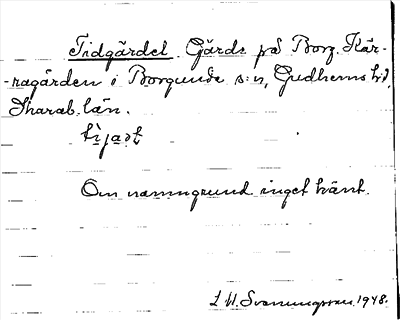 Tidgärdel. Gärde på Borg. Kär-
-ragården i Borgunda s:n, Gudhems hd,
Skarab. län.
Om namngrund inget känt.
L M. Svenungsson, 1948.